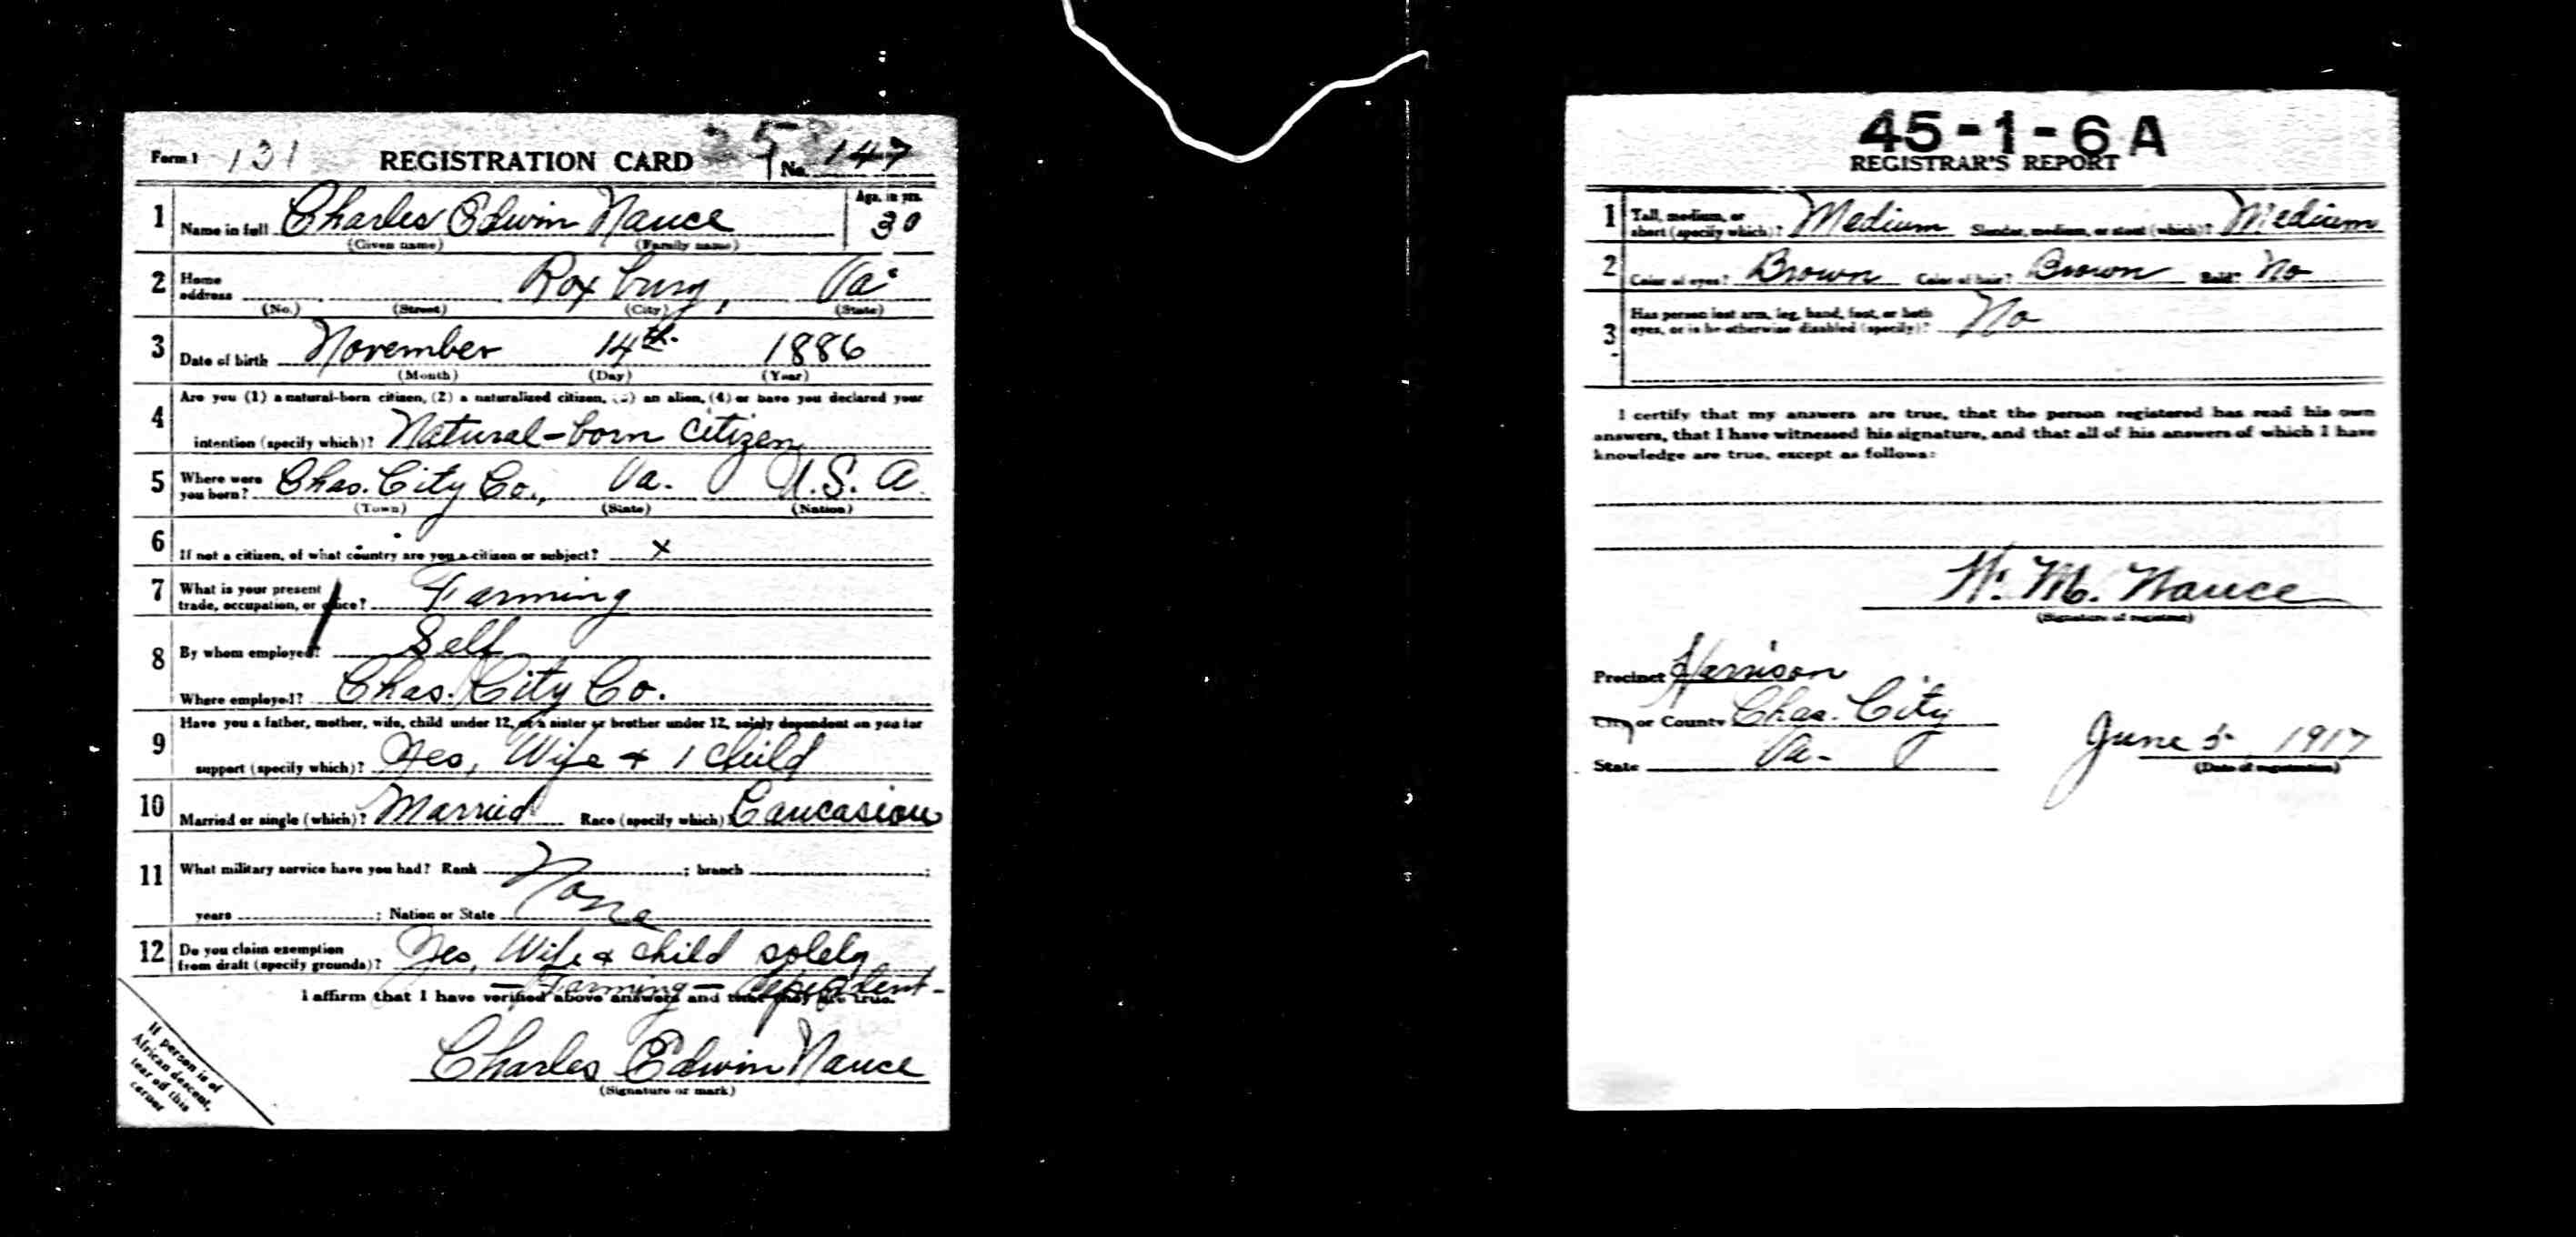 Form 1 131 REGISTRATION CARD 5 No. 147
1 Name in full Charles Edwin Nance Age, in yrs. 30
(Given name) (Family name)
2 Home address Roxbury, Va.
(No.) (Street) (City) (State)
3 Date of birth November 14th. 1886
(Month) (Day) (Year)
4 Are you (1) a natural-born citizen, (2) a naturalized citizen, (3) an alien, (4) or have you declared your
intention (specify which)? Natural-born citizen
5 Where were you born? Chas. City Co., Va. U.S.A.
(Town) (State) (Nation)
6 If not a citizen, of what country are you a citizen or subject? x
7 What is your present
trade, occupation, or office? Farming
8 By whom employed? Self
Where employed? Chas. City Co.
9 Have you a father, mother, wife, child under 12, or a sister or brother under 12, solely dependent on you for
support (specify which)? Yes, Wife + 1 child
10 Married or single (which)? Married Race (specify which)? Caucasion
11 What military service have you had? Rank None ; branch ;
years ; Nation or State
12 Do you claim exemption
from draft (specify grounds)? Yes, Wife & child solely
- Farming - dependent -
I affirm that I have verified above answers and that they are true.
Charles Edwin Nance
(Signature or mark)
If person is of
African descent,
tear off this
corner
45-1-6 A
REGISTRAR'S REPORT
1 Tall, medium, or
short (specify which)? Medium Slender, medium, or stout (which)? Medium
2 Color of eyes? Brown Color of hair? Brown Bald? No
3 Has person lost arm, leg, hand, foot, or both
eyes, or is he otherwise disabled (specify)? No
I certify that my answers are true, that the person registered has read his own
answers, that I have witnessed his signature, and that all of his answers of which I have
knowledge are true, except as follows:
W. M. Nance
(Signature of registrar)
Precinct Harrison
City or County Chas. City
State Va.
June 5, 1917
(Date of registration)